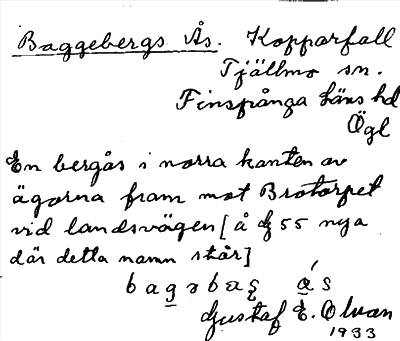 Baggebergs Ås. Kopparfall
Tjällmo sn.
Finspånga läns hd
Ögl
En bergås i norra kanten av
ägorna fram mot Brotorpet
vid landsvägen [å dj 55 nya
där detta namn står]
bagəbaʂ ás
Gustaf E. Olwan
1933